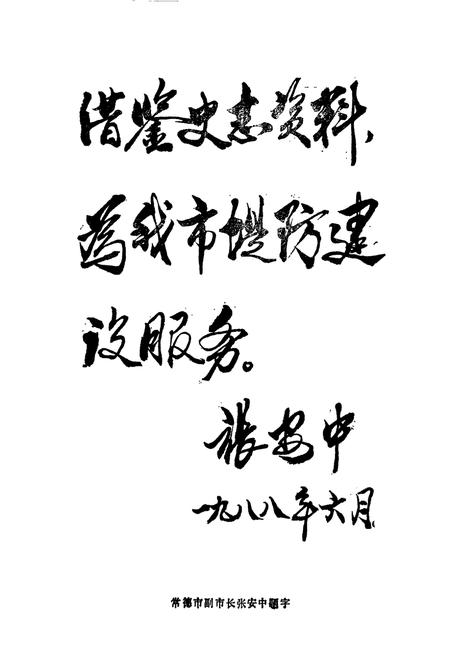 借鉴史志资料，
为我市堤防建
设服务。
張安中
一九八八年六月
常德市副市长张安中题字